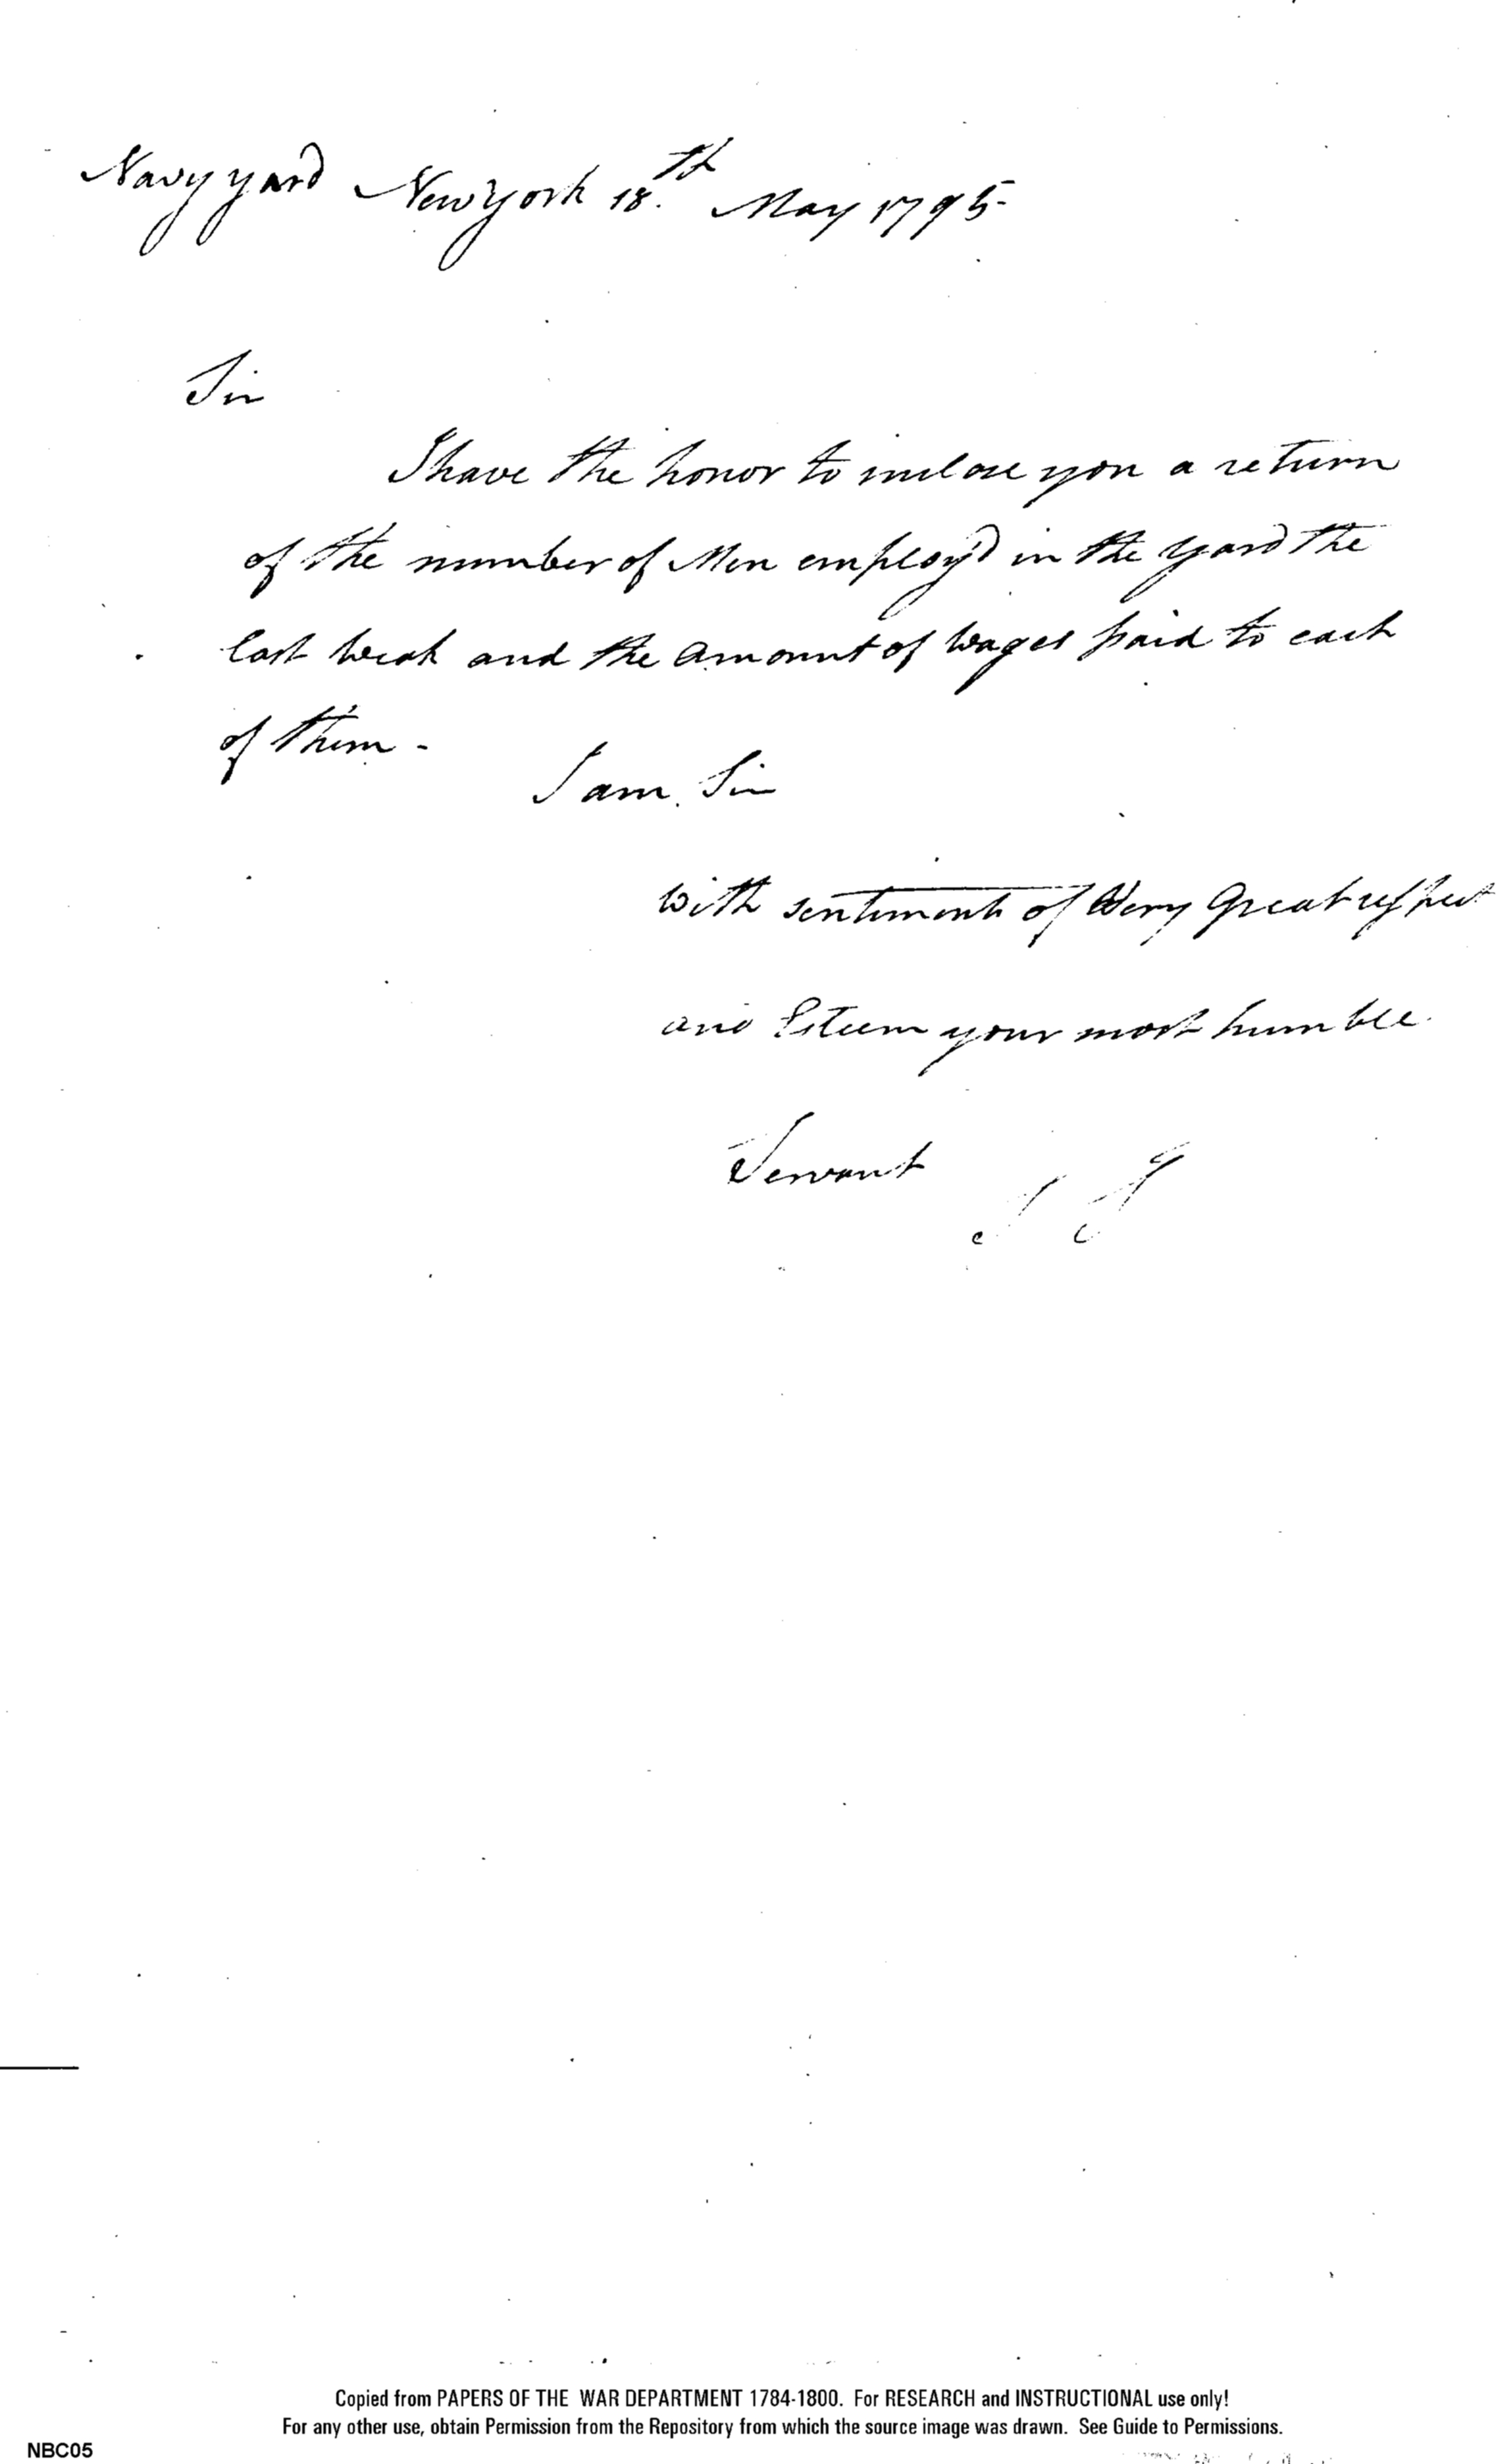 Navy yard New York 18.th May 1795
Sir
I have the honor to inclose you a return
of the number of Men employ'd in the yard the
last week and the amount of wages paid to each
of them -
I am Sir
with sentiments of Very Great respect
and Esteem your most humble
Servant
Copied from PAPERS OF THE WAR DEPARTMENT 1784-1800. For RESEARCH and INSTRUCTIONAL use only!
For any other use, obtain Permission from the Repository from which the source image was drawn. See Guide to Permissions.
NBC05